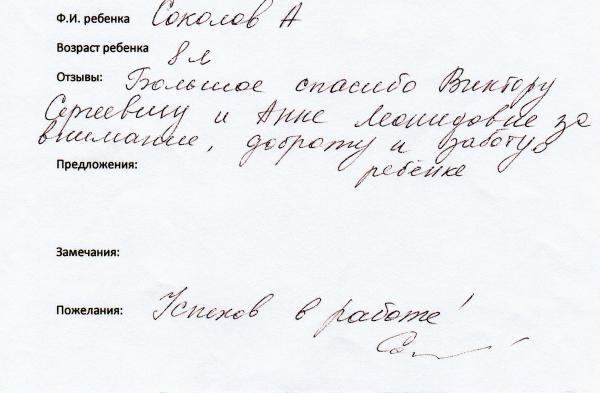 Ф.И. ребенка Соколов А
Возраст ребенка 8 л
Отзывы: Большое спасибо Виктору
Сергеевичу и Анне Леонидовне за
внимание, доброту и заботу о
ребёнке
Предложения:
Замечания:
Пожелания: Успехов в работе!